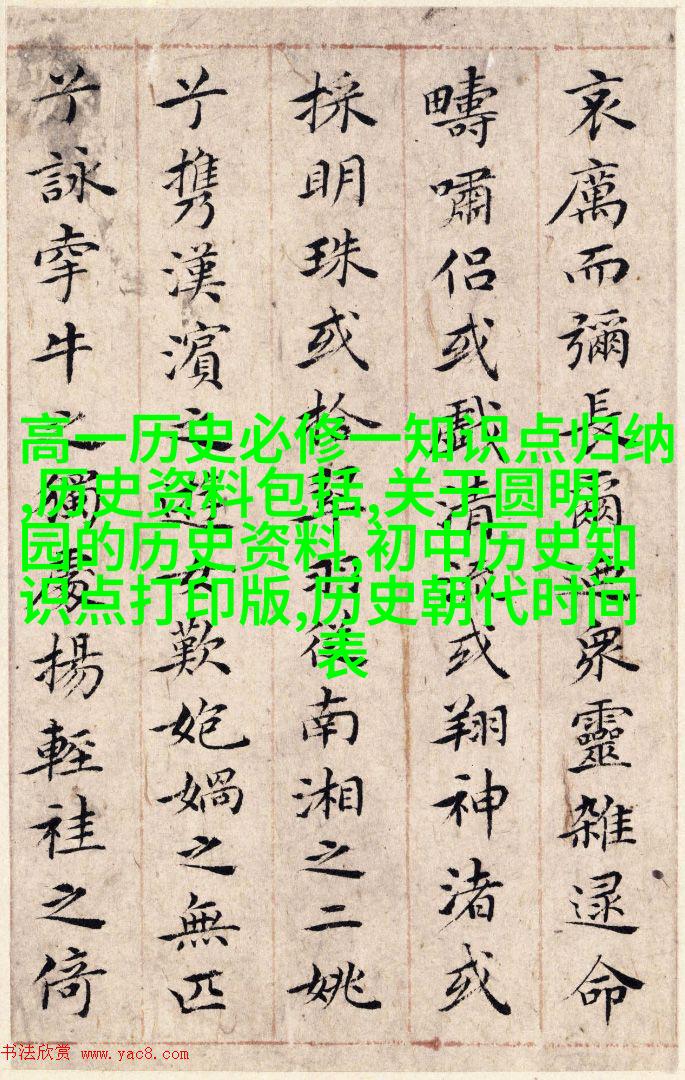 哀厲而彌長爾衆靈雜遝命
疇嘯侶或戲清流或翔神渚或
採明珠或拾翠羽從南湘之二姚
兮攜漢濱之遊女歎媧之無匹
兮詠牽牛之獨處揚輕袿之倚
高一历史必修一知识点归纳
,历史资料包括,关于圆明
园的历史资料,初中历史知
识点打印版,历史朝代时间
表
书法欣赏 www.yac8.com